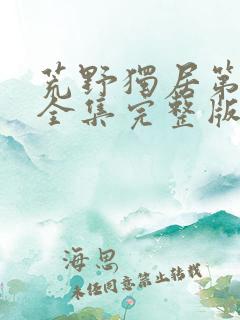 荒野獨居第
全集完整版
海思
未经同意禁止转载